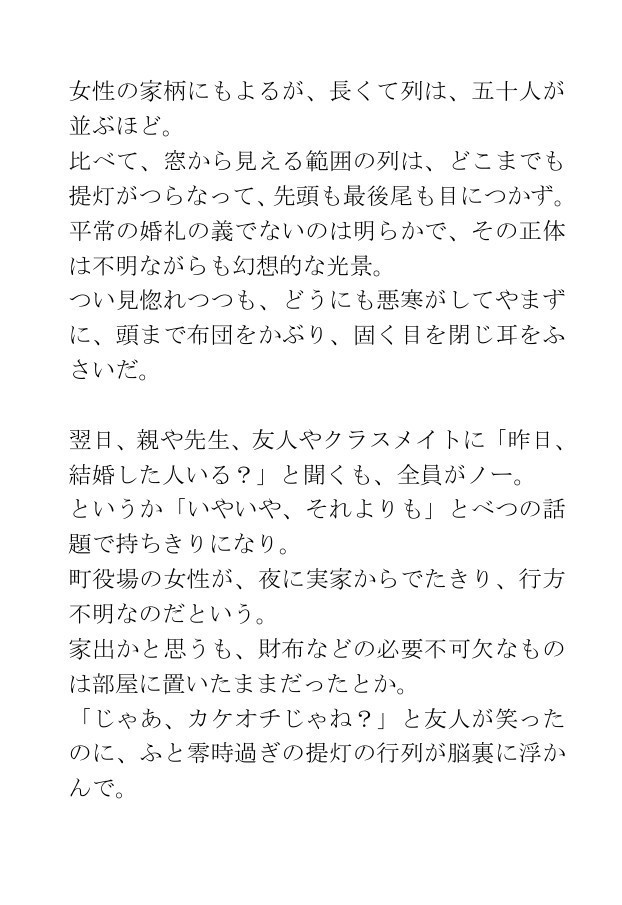 女性の家柄にもよるが、長くて列は、五十人が
並ぶほど。
比べて、窓から見える範囲の列は、どこまでも
提灯がつらなって、先頭も最後尾も目につかず。
平常の婚礼の義でないのは明らかで、その正体
は不明ながらも幻想的な光景。
つい見惚れつつも、どうにも悪寒がしてやまず
に、頭まで布団をかぶり、固く目を閉じ耳をふ
さいだ。
翌日、親や先生、友人やクラスメイトに「昨日、
結婚した人いる？」と聞くも、全員がノー。
というか「いやいや、それよりも」とべつの話
題で持ちきりになり。
町役場の女性が、夜に実家からでたきり、行方
不明なのだという。
家出かと思うも、財布などの必要不可欠なもの
は部屋に置いたままだったとか。
「じゃあ、カケオチじゃね？」と友人が笑った
のに、ふと零時過ぎの提灯の行列が脳裏に浮か
んで。